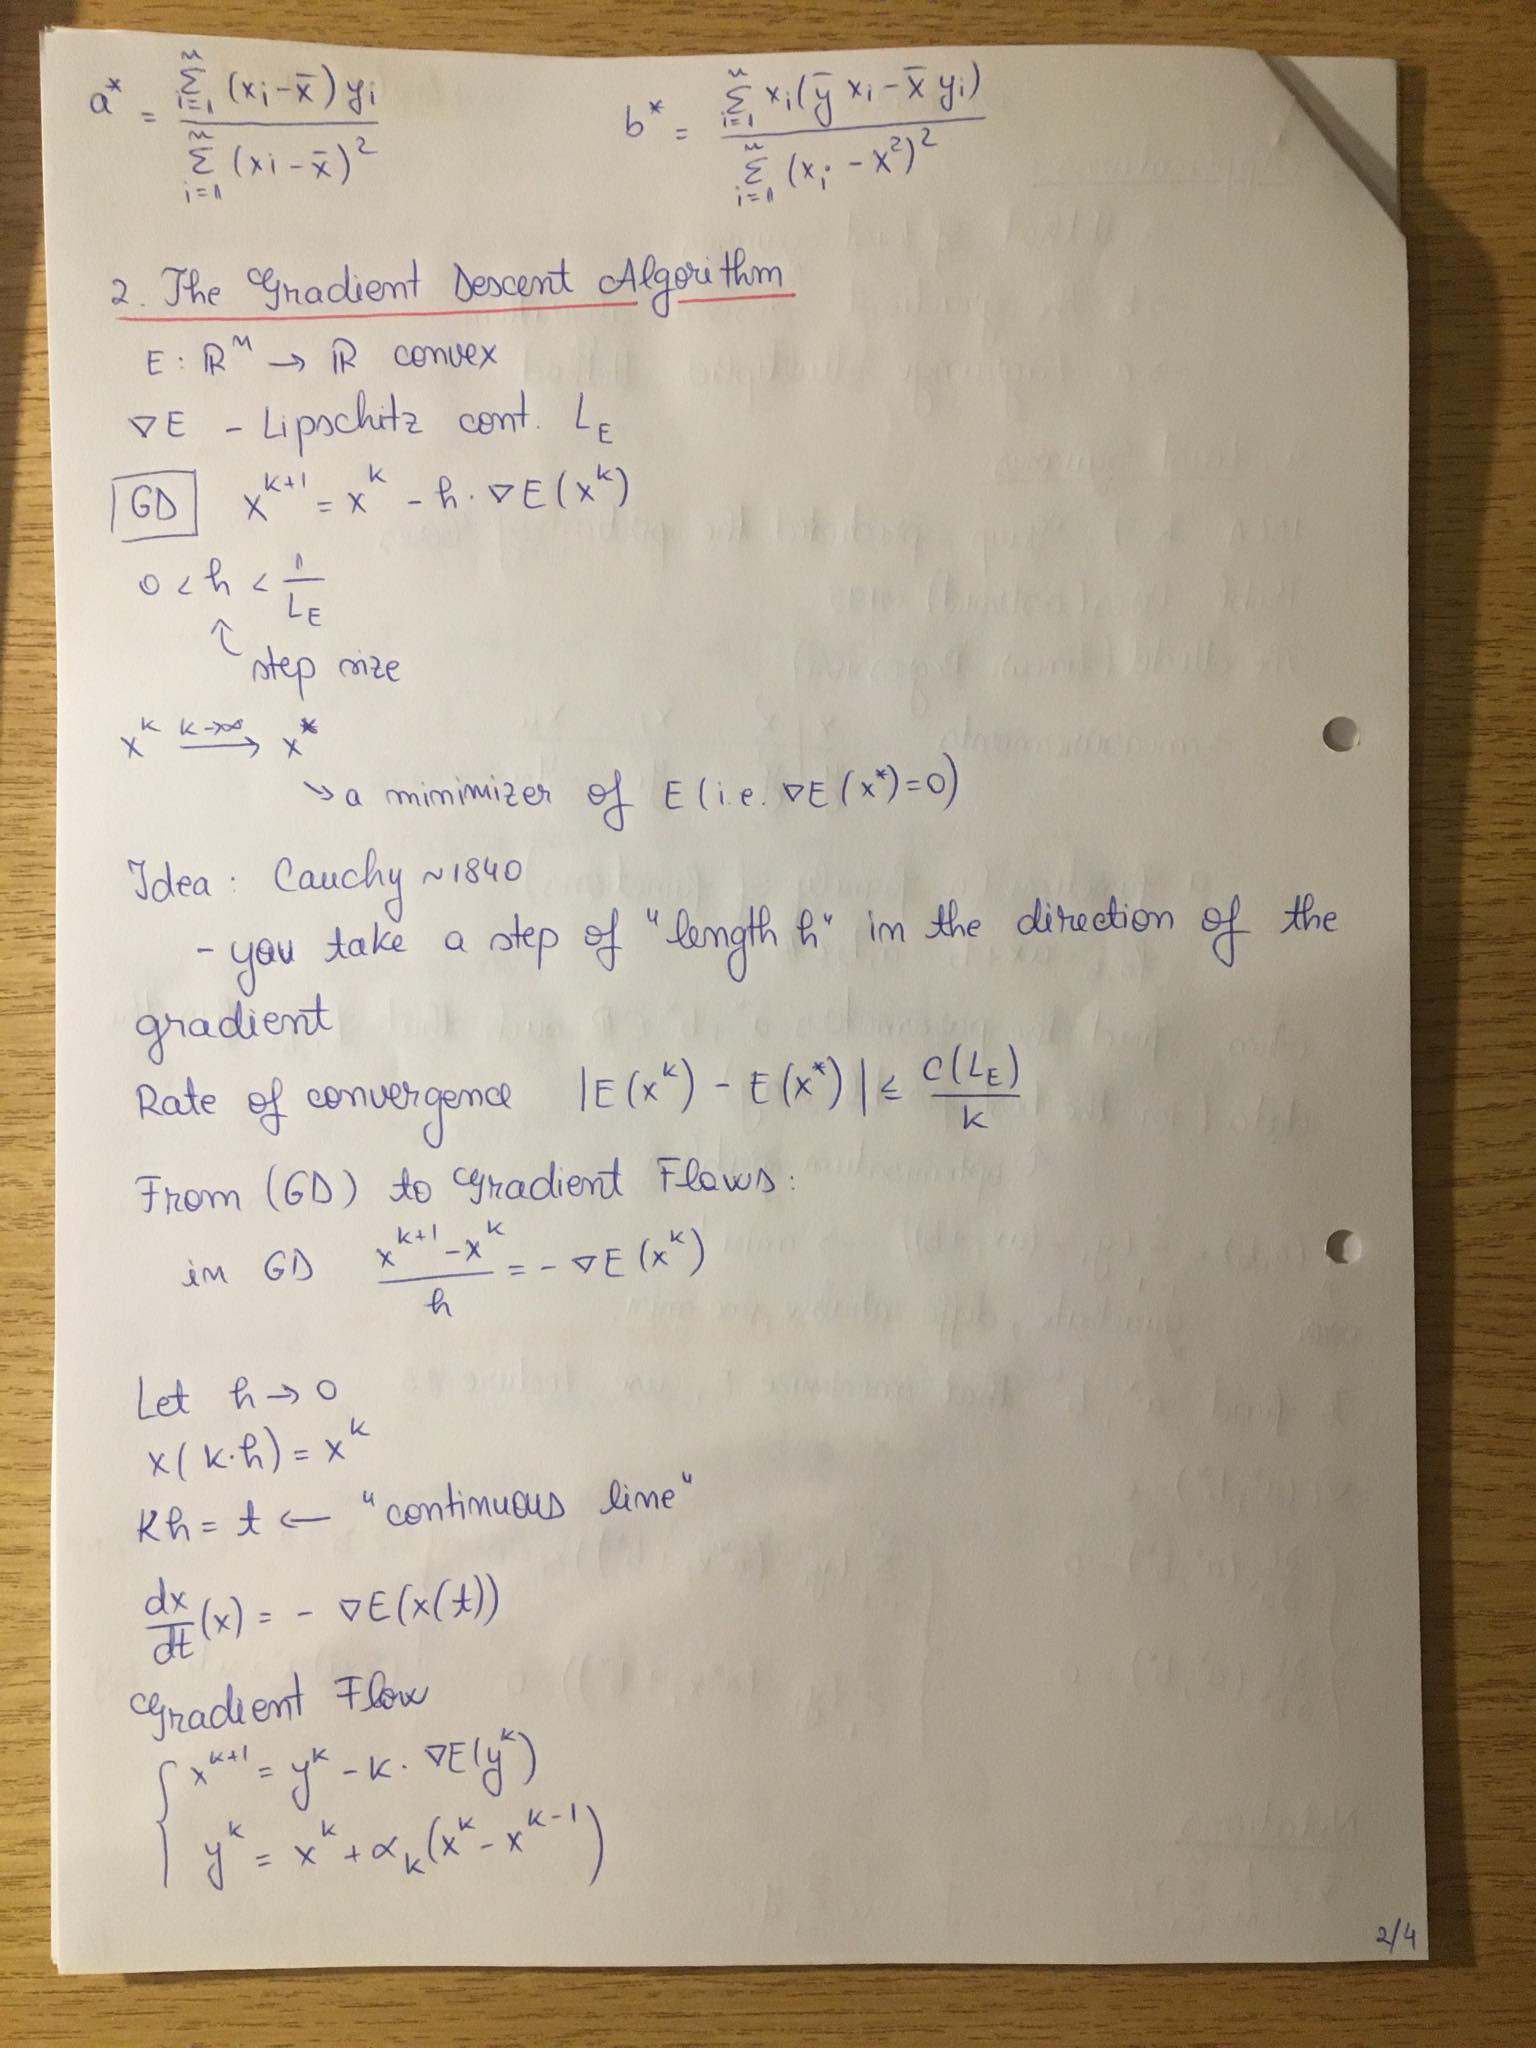 a* = \frac{\sum_{i=1}^{n} (x_i - \bar{x}) y_i}{\sum_{i=1}^{n} (x_i - \bar{x})^2}    b* = \frac{\sum_{i=1}^{n} x_i(\bar{y} x_i - \bar{x} y_i)}{\sum_{i=1}^{n} (x_i - x^2)^2}
2. The Gradient Descent Algorithm
E : ℝ^n → ℝ convex
∇E - Lipschitz cont. L_E
GD x^{k+1} = x^k - h · ∇E(x^k)
0 < h < \frac{1}{L_E}
step size
x^k \xrightarrow{k→∞} x*
↘ a minimizer of E (i.e. ∇E(x*)=0)
Idea : Cauchy ~1840
- you take a step of "length h" in the direction of the
gradient
Rate of convergence |E(x^k) - E(x*)| ≤ \frac{C(L_E)}{k}
From (GD) to Gradient Flows :
in GD \frac{x^{k+1} - x^k}{h} = - ∇E(x^k)
Let h → 0
x(k·h) = x^k
Kh = t ← "continuous line"
\frac{dx}{dt}(x) = - ∇E(x(t))
Gradient Flow
{ x^{k+1} = y^k - k · ∇E(y^k)
y^k = x^k + α_k(x^k - x^{k-1})
2/4